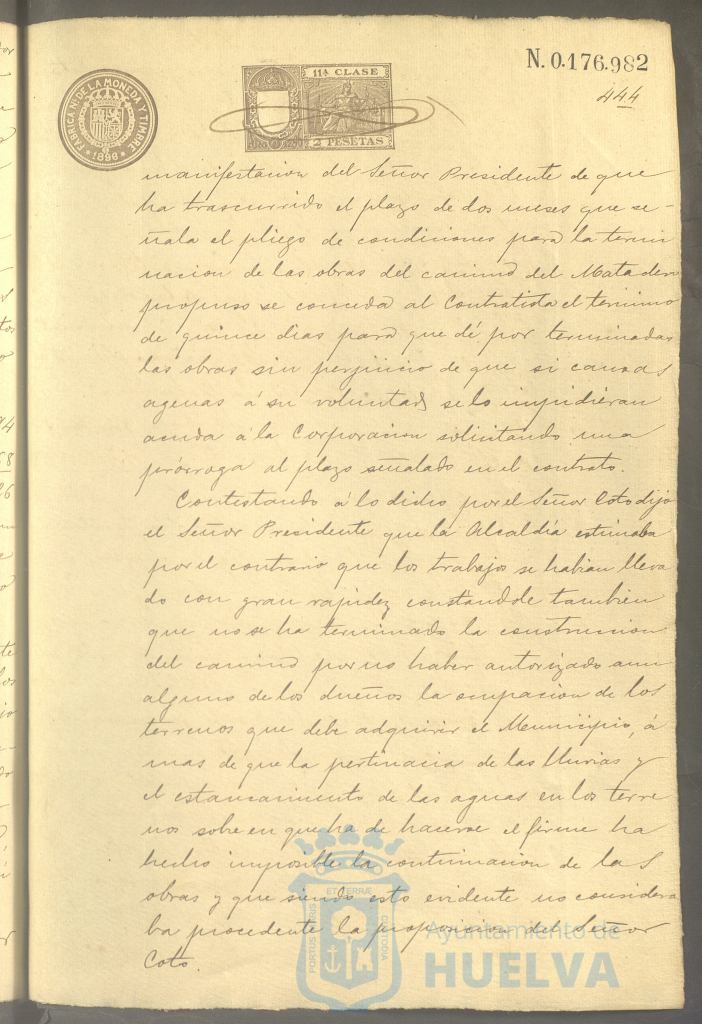 N. 0.176.982
444
FABRICA Nl. DE LA MONEDA Y TIMBRE
* 1898 *
11ª CLASE
2 PESETAS
manifestacion del Señor Presidente de que
ha trascurrido el plazo de dos meses que se-
ñala el pliego de condiciones para la termi
nacion de las obras del camino del Matadero
propuso se conceda al Contratista el termino
de quince dias para que dé por terminadas
las obras sin perjuicio de que si causas
agenas á su voluntad se lo impidieran
acuda á la Corporacion solicitando una
prórroga al plazo señalado en el contrato.
Contestando á lo dicho por el Señor Coto dijo
el Señor Presidente que la Alcaldía estimaba
por el contrario que los trabajos se habian lleva
do con gran rapidez constandole tambien
que no se ha terminado la construccion
del camino por no haber autorizado aun
alguno de los dueños la ocupacion de los
terrenos que debe adquirir el Municipio, á
mas de que la pertinacia de las lluvias y
el estancamiento de las aguas en los terre
nos sobre en que ha de hacerse el firme ha
hecho imposible la continuacion de las
obras y que siendo esto evidente no considera
ba procedente la proposicion del Señor
Coto.
PORTUS MARIS ET TERRÆ CUSTODIA
Ayuntamiento de
HUELVA